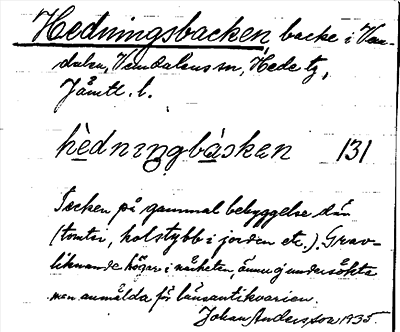 Hedningsbacken, backe i Vem-
dalen, Vemdalens sn, Hede tg,
Jämtl. l.
hèdningbàskan 131
Tecken på gammal bebyggelse där
(tomter, kolstybb i jorden etc.). Grav-
liknande högar i närheten, ännu ej undersökta
men anmälda för länsantikvarien.
Johan Andersson 1935